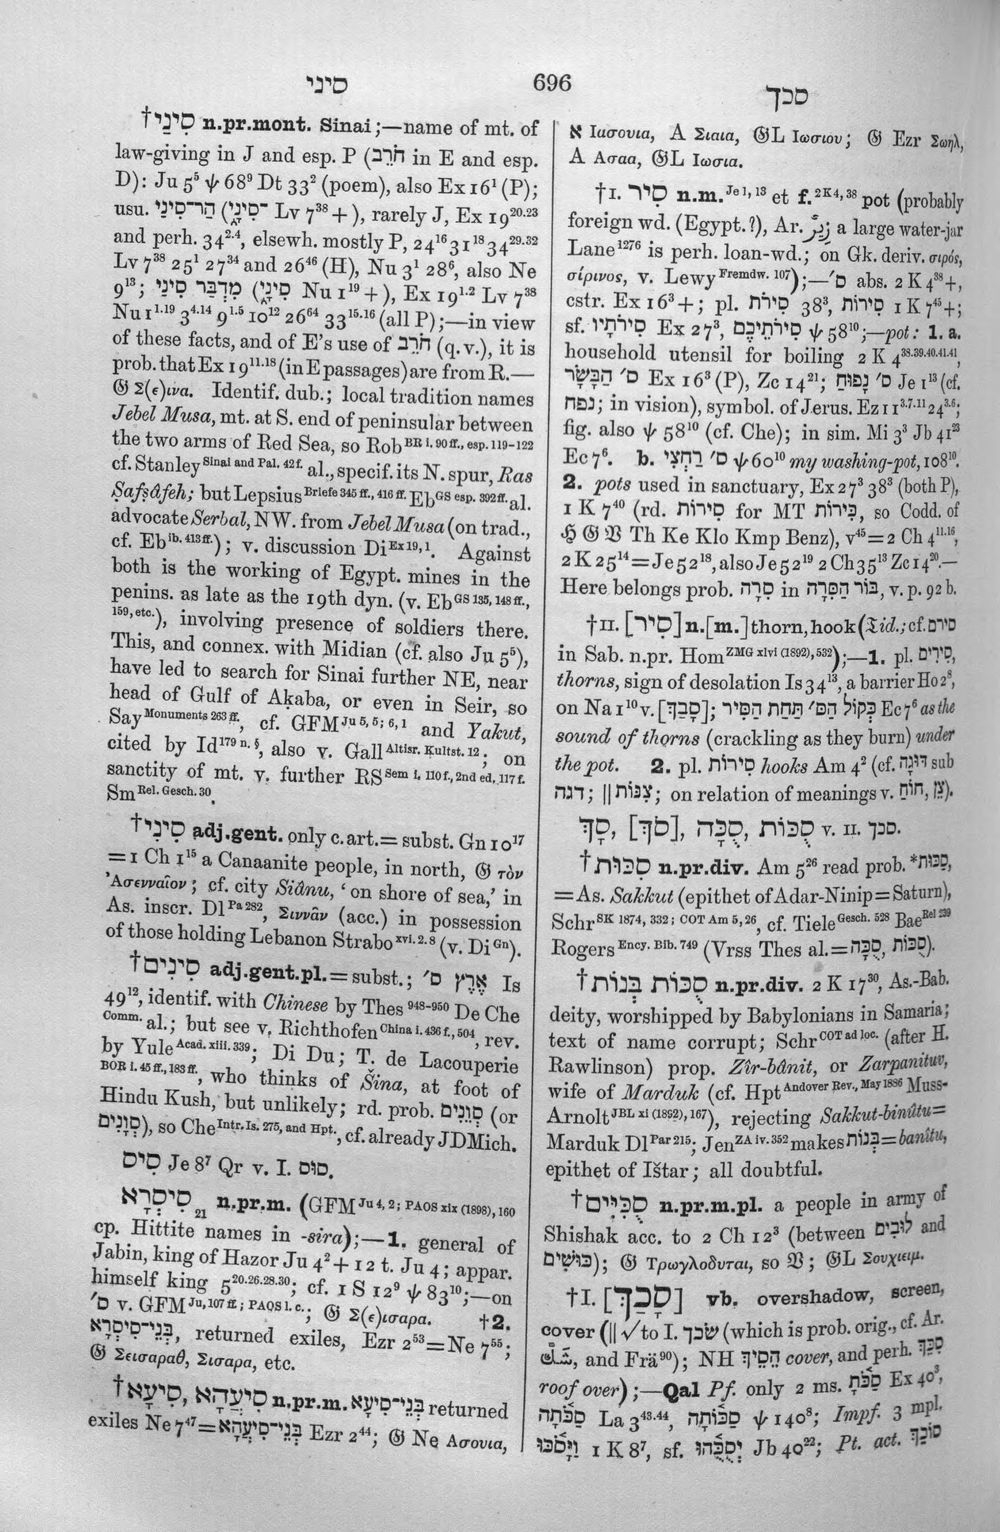 סיני
696
סכך
†סִינַי n.pr.mont. Sinai;—name of mt. of
law-giving in J and esp. P (חֹרֵב in E and esp.
D): Ju 5⁵ ψ 68⁹ Dt 33² (poem), also Ex 16¹ (P);
usu. הַר־סִינַי (סִינָ֑י־ Lv 7³⁸ +), rarely J, Ex 19²⁰·²³
and perh. 34²·⁴, elsewh. mostly P, 24¹⁶ 31¹⁸ 34²⁹·³²
Lv 7³⁸ 25¹ 27³⁴ and 26⁴⁶ (H), Nu 3¹ 28⁶, also Ne
9¹³; מִדְבַּר סִינַי (סִינָ֑י Nu 1¹⁹ +), Ex 19¹·² Lv 7³⁸
Nu 1¹·¹⁹ 3⁴·¹⁴ 9¹·⁵ 10¹² 26⁶⁴ 33¹⁵·¹⁶ (all P);—in view
of these facts, and of E's use of חֹרֵב (q.v.), it is
prob. that Ex 19¹¹·¹⁸ (in E passages) are from R.—
𝔊 Σ(ε)ινα. Identif. dub.; local tradition names
Jebel Musa, mt. at S. end of peninsular between
the two arms of Red Sea, so Rob BR i. 90 ff., esp. 119-122
cf. Stanley Sinai and Pal. 42 f. al., specif. its N. spur, Ras
Ṣafṣâfeh; but Lepsius Briefe 345 ff., 416 ff. Eb GS esp. 392 ff. al.
advocate Serbal, NW. from Jebel Musa (on trad.,
cf. Eb ib. 413 ff.); v. discussion Di Ex 19, 1. Against
both is the working of Egypt. mines in the
penins. as late as the 19th dyn. (v. Eb GS 135, 148 ff.,
159, etc.), involving presence of soldiers there.
This, and connex. with Midian (cf. also Ju 5⁵),
have led to search for Sinai further NE, near
head of Gulf of Aḳaba, or even in Seir, so
Say Monuments 263 ff., cf. GFM Ju 5, 5; 6, 1 and Yakut,
cited by Id 179 n. §, also v. Gall Altisr. Kultst. 12; on
sanctity of mt. v. further RS Sem i, 110 f., 2nd ed, 117 f.
Sm Rel. Gesch. 30.
†סִינִי adj.gent. only c. art. = subst. Gn 10¹⁷
= 1 Ch 1¹⁵ a Canaanite people, in north, 𝔊 τὸν
Ἀσενναῖον; cf. city Siânu, 'on shore of sea,' in
As. inscr. Dl Pa 282, Σιννᾶν (acc.) in possession
of those holding Lebanon Strabo xvi. 2. 8 (v. Di Gn).
†סִינִים adj.gent.pl. = subst.; אֶרֶץ ס׳ Is
49¹², identif. with Chinese by Thes 948-950 De Che
Comm. al.; but see v. Richthofen China i. 436 f., 504, rev.
by Yule Acad. xiii. 339; Di Du; T. de Lacouperie
BOR i. 45 ff., 183 ff., who thinks of Šina, at foot of
Hindu Kush, but unlikely; rd. prob. סְוֵנִים (or
סְוָנִים), so Che Intr. Is. 275, and Hpt., cf. already JDMich.
סִיס Je 8⁷ Qr v. I. סוס.
סִיסְרָא 21 n.pr.m. (GFM Ju 4, 2; PAOS xix (1898), 160
cp. Hittite names in -sira);—1. general of
Jabin, king of Hazor Ju 4² + 12 t. Ju 4; appar.
himself king 5²⁰·²⁶·²⁸·³⁰; cf. 1 S 12⁹ ψ 83¹⁰;—on
ס׳ v. GFM Ju, 107 ff.; PAOS l. c.; 𝔊 Σ(ε)ισαρα. †2.
בְּנֵי־סִיסְרָא, returned exiles, Ezr 2⁵³ = Ne 7⁵⁵;
𝔊 Σεισαραθ, Σισαρα, etc.
†סִיעָא, סִיעֲהָא n.pr.m. בְּנֵי־סִיעָא returned
exiles Ne 7⁴⁷ = בְּנֵי־סִיעֲהָא Ezr 2⁴⁴; 𝔊 Ne Ασουια,
א Ιασουια, A Σιαια, 𝔊L Ιωσιου; 𝔊 Ezr Σωηλ,
A Ασαα, 𝔊L Ιωσια.
†I. סִיר n.m. Je 1, 13 et f. 2 K 4, 38 pot (probably
foreign wd. (Egypt.?), Ar. زِيرٌ a large water-jar
Lane 1276 is perh. loan-wd.; on Gk. deriv. σιρός,
σίρινος, v. Lewy Fremdw. 107);—ס׳ abs. 2 K 4³⁸ +,
cstr. Ex 16³ +; pl. סִירֹת 38³, סִירוֹת 1 K 7⁴⁵ +;
sf. סִירֹתָיו Ex 27³, סִירֹתֵיכֶם ψ 58¹⁰;—pot: 1. a.
household utensil for boiling 2 K 4³⁸·³⁹·⁴⁰·⁴¹·⁴¹,
ס׳ הַבָּשָׂר Ex 16³ (P), Zc 14²¹; ס׳ נָפוּחַ Je 1¹³ (cf.
נפח; in vision), symbol. of Jerus. Ez 11³·⁷·¹¹ 24³·⁶;
fig. also ψ 58¹⁰ (cf. Che); in sim. Mi 3³ Jb 41²³
Ec 7⁶. b. ס׳ רַחְצִי ψ 60¹⁰ my washing-pot, 108¹⁰.
2. pots used in sanctuary, Ex 27³ 38³ (both P),
1 K 7⁴⁰ (rd. סִירוֹת for MT כִּירוֹת, so Codd. of
ℌ 𝔊 𝔙 Th Ke Klo Kmp Benz), v⁴⁵ = 2 Ch 4¹¹·¹⁶,
2 K 25¹⁴ = Je 52¹⁸, also Je 52¹⁹ 2 Ch 35¹³ Zc 14²⁰.—
Here belongs prob. סִרָה in בּוֹר הַסִּרָה, v. p. 92 b.
†II. [סִיר] n.[m.] thorn, hook (𝔗 id.; cf. סירם
in Sab. n.pr. Hom ZMG xlvi (1892), 532);—1. pl. סִירִים,
thorns, sign of desolation Is 34¹³, a barrier Ho 2⁸,
on Na 1¹⁰ v. [סָבַךְ]; כְּקוֹל הַסּ׳ תַּחַת הַסִּיר Ec 7⁶ as the
sound of thorns (crackling as they burn) under
the pot. 2. pl. סִירוֹת hooks Am 4² (cf. דּוּגָה sub
דגה; ‖ צִנּוֹת; on relation of meanings v. חוֹחַ, צֵן).
סָךְ, [סֹךְ], סֻכָּה, סֻכּוֹת v. II. סכך.
†סִכּוּת n.pr.div. Am 5²⁶ read prob. *סַכּוּת,
= As. Sakkut (epithet of Adar-Ninip = Saturn),
Schr SK 1874, 332; COT Am 5, 26, cf. Tiele Gesch. 528 Bae Rel 239
Rogers Ency. Bib. 749 (Vrss Thes al. = סֻכָּה, סֻכּוֹת).
†סֻכּוֹת בְּנוֹת n.pr.div. 2 K 17³⁰, As.-Bab.
deity, worshipped by Babylonians in Samaria;
text of name corrupt; Schr COT ad loc. (after H.
Rawlinson) prop. Zîr-bânit, or Zarpanituv,
wife of Marduk (cf. Hpt Andover Rev., May 1886 Muss-
Arnolt JBL xi (1892), 167), rejecting Sakkut-binûtu =
Marduk Dl Par 215; Jen ZA iv. 352 makes בְּנוֹת = banîtu,
epithet of Ištar; all doubtful.
†סֻכִּיִּים n.pr.m.pl. a people in army of
Shishak acc. to 2 Ch 12³ (between לוּבִים and
כּוּשִׁים); 𝔊 Τρωγλοδυται, so 𝔙; 𝔊L Σουχιειμ.
†I. [סָכַךְ] vb. overshadow, screen,
cover (‖ √ to I. שׂכך (which is prob. orig., cf. Ar.
شَكَّ, and Frä 90); NH הֵסֵיךְ cover, and perh. סִכֵּךְ
roof over);—Qal Pf. only 2 ms. סַכֹּתָ Ex 40³,
סַכֹּתָה La 3⁴³·⁴⁴, סַכּוֹתָה ψ 140⁸; Impf. 3 mpl.
וַיָּסֹכּוּ 1 K 8⁷, sf. יְסֻכֻּהוּ Jb 40²²; Pt. act. סוֹכֵךְ